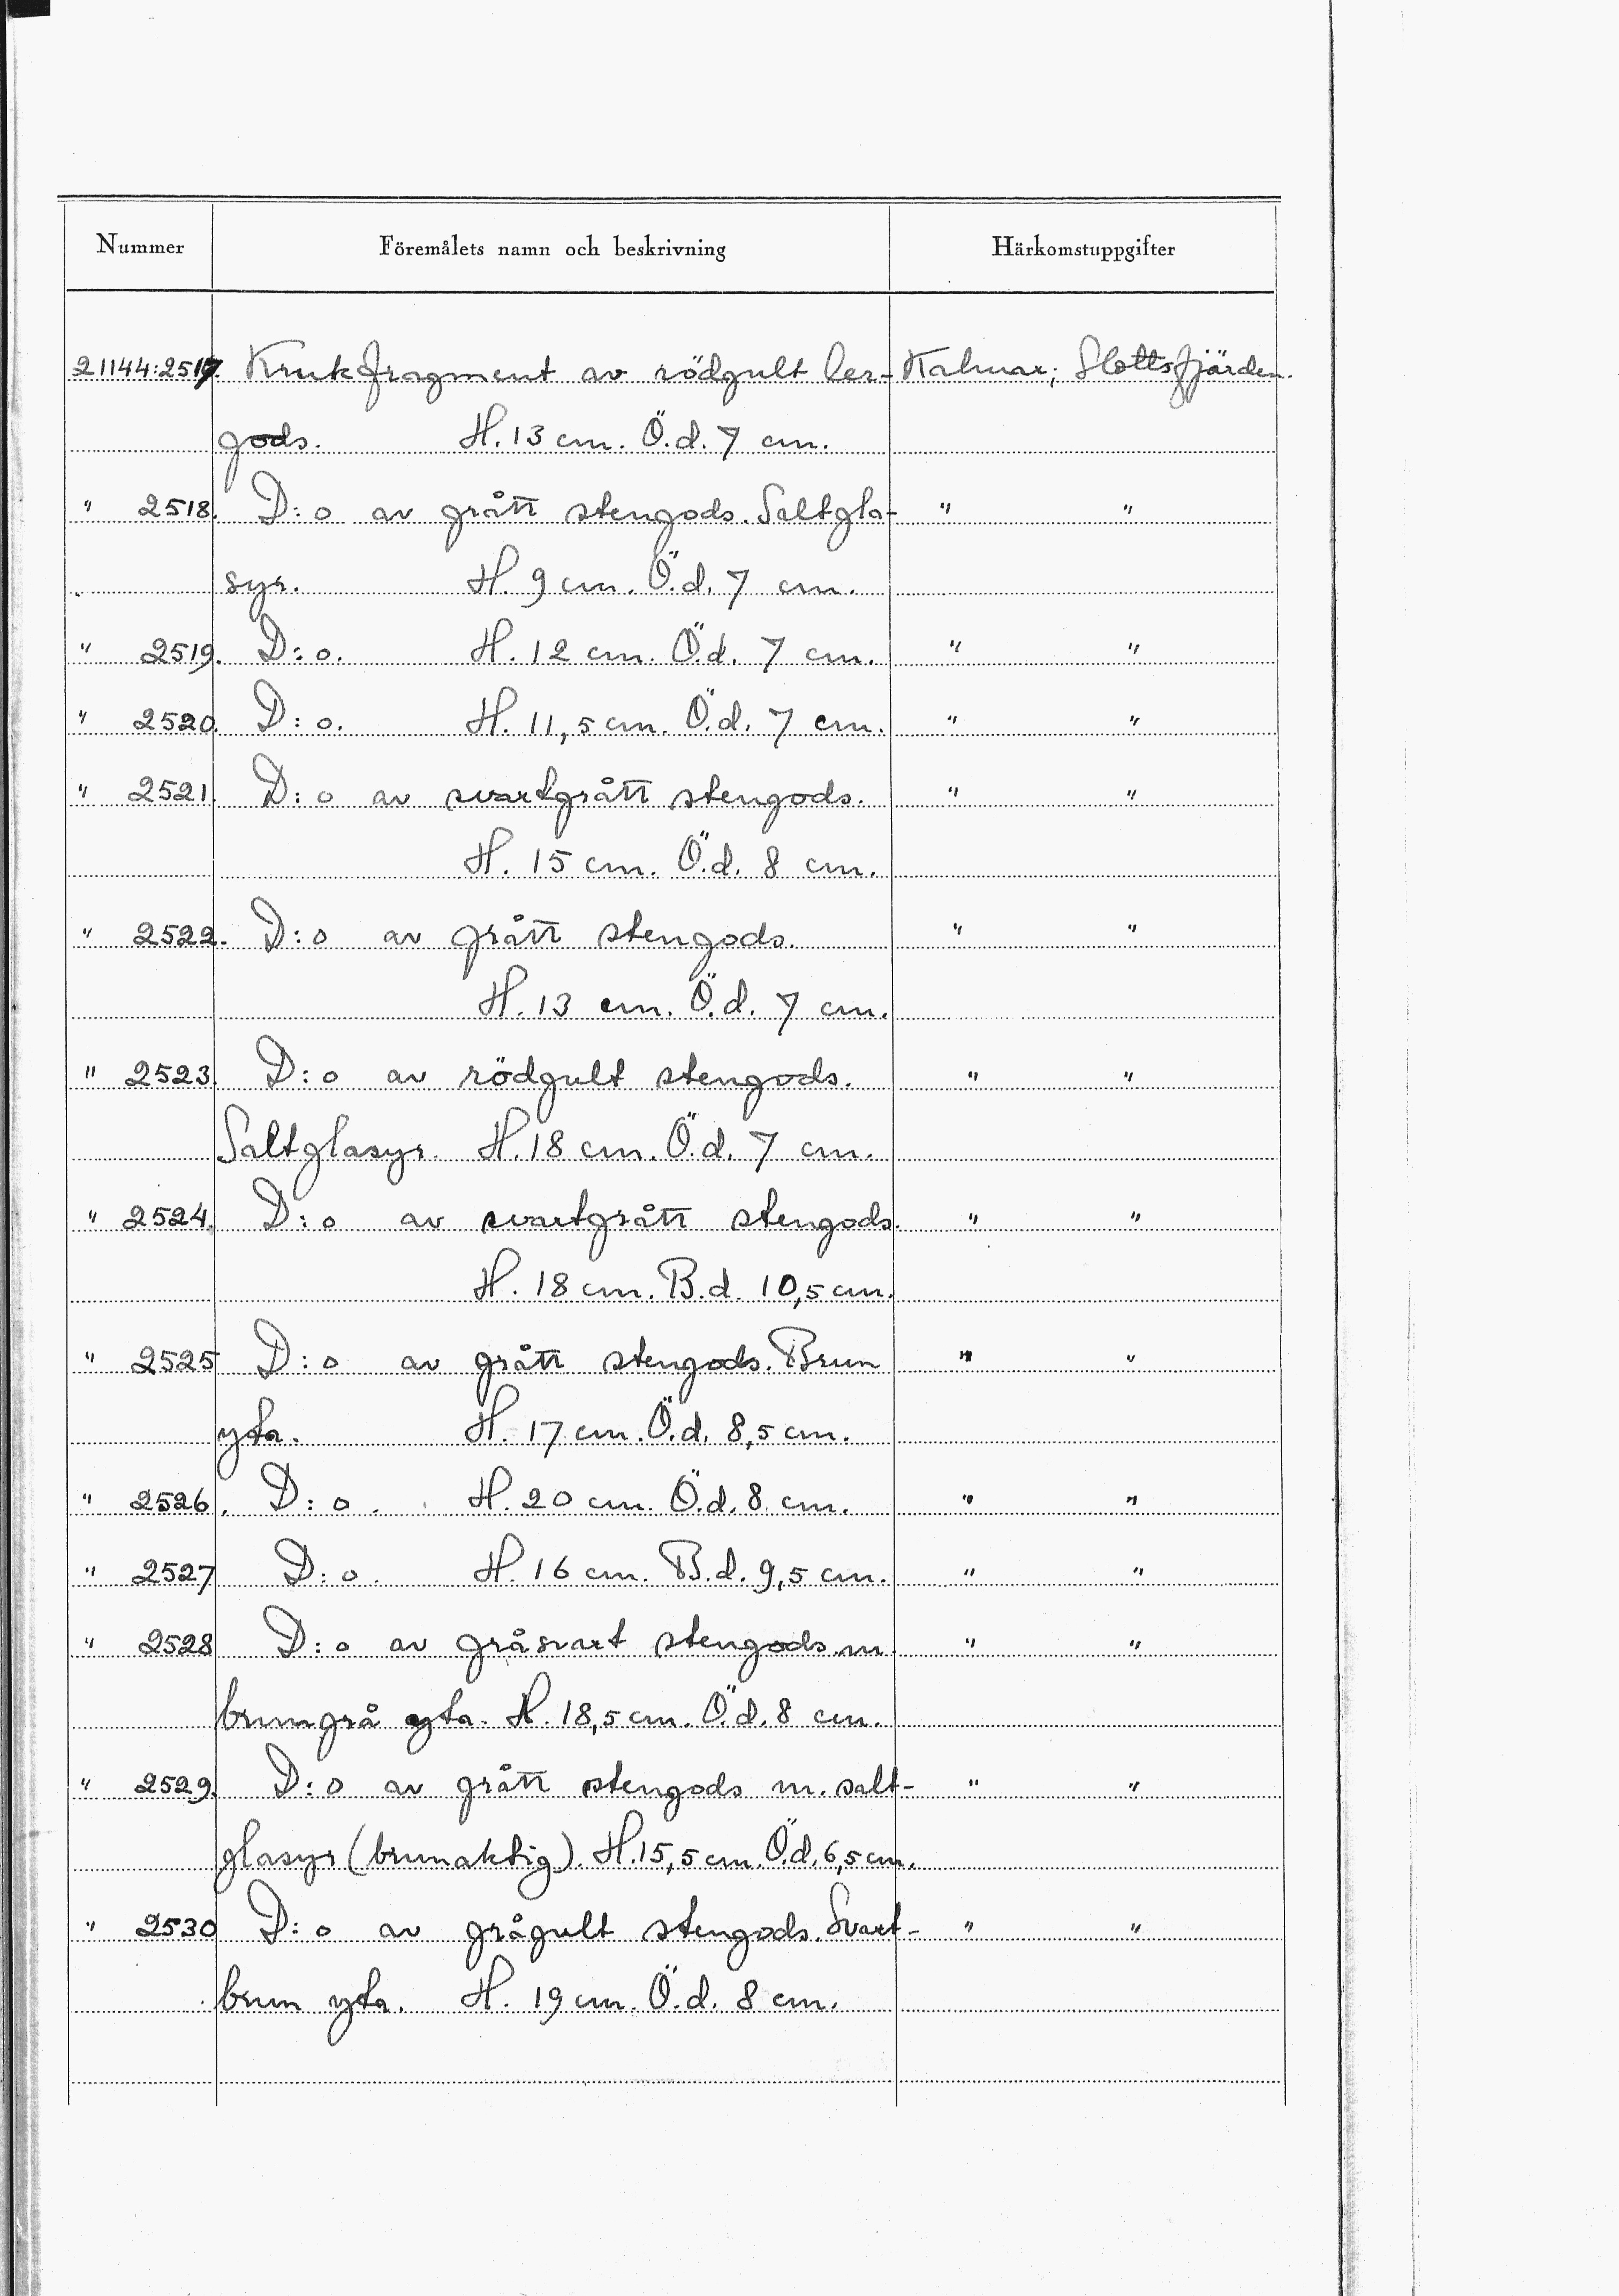 Nummer Föremålets namn och beskrivning Härkomstuppgifter
21144:2517. Krukfragment av rödgult ler- Kalmar; Slottsfjärden.
gods. H. 13 cm. Ö.d. 7 cm.
" 2518. D:o av grått stengods. Saltgla- " "
syr. H. 9 cm. Ö.d. 7 cm.
" 2519. D:o. H. 12 cm. Ö.d. 7 cm. " "
" 2520. D:o. H. 11,5 cm. Ö.d. 7 cm. " "
" 2521. D:o av svartgrått stengods. " "
H. 15 cm. Ö.d. 8 cm.
" 2522. D:o av grått stengods. " "
H. 13 cm. Ö.d. 7 cm.
" 2523. D:o av rödgult stengods. " "
Saltglasyr. H. 18 cm. Ö.d. 7 cm.
" 2524. D:o av svartgrått stengods. " "
H. 18 cm. B.d. 10,5 cm.
" 2525 D:o av grått stengods. Brun " "
yta. H. 17 cm. Ö.d. 8,5 cm.
" 2526. D:o. H. 20 cm. Ö.d. 8 cm. " "
" 2527 D:o. H. 16 cm. B.d. 9,5 cm. " "
" 2528 D:o av gråsvart stengods m. " "
brungrå yta. H. 18,5 cm. Ö.d. 8 cm.
" 2529. D:o av grått stengods m. salt- " "
glasyr (brunaktig). H. 15,5 cm. Ö.d. 6,5 cm.
" 2530 D:o av grågult stengods. Svart- " "
brun yta. H. 19 cm. Ö.d. 8 cm.